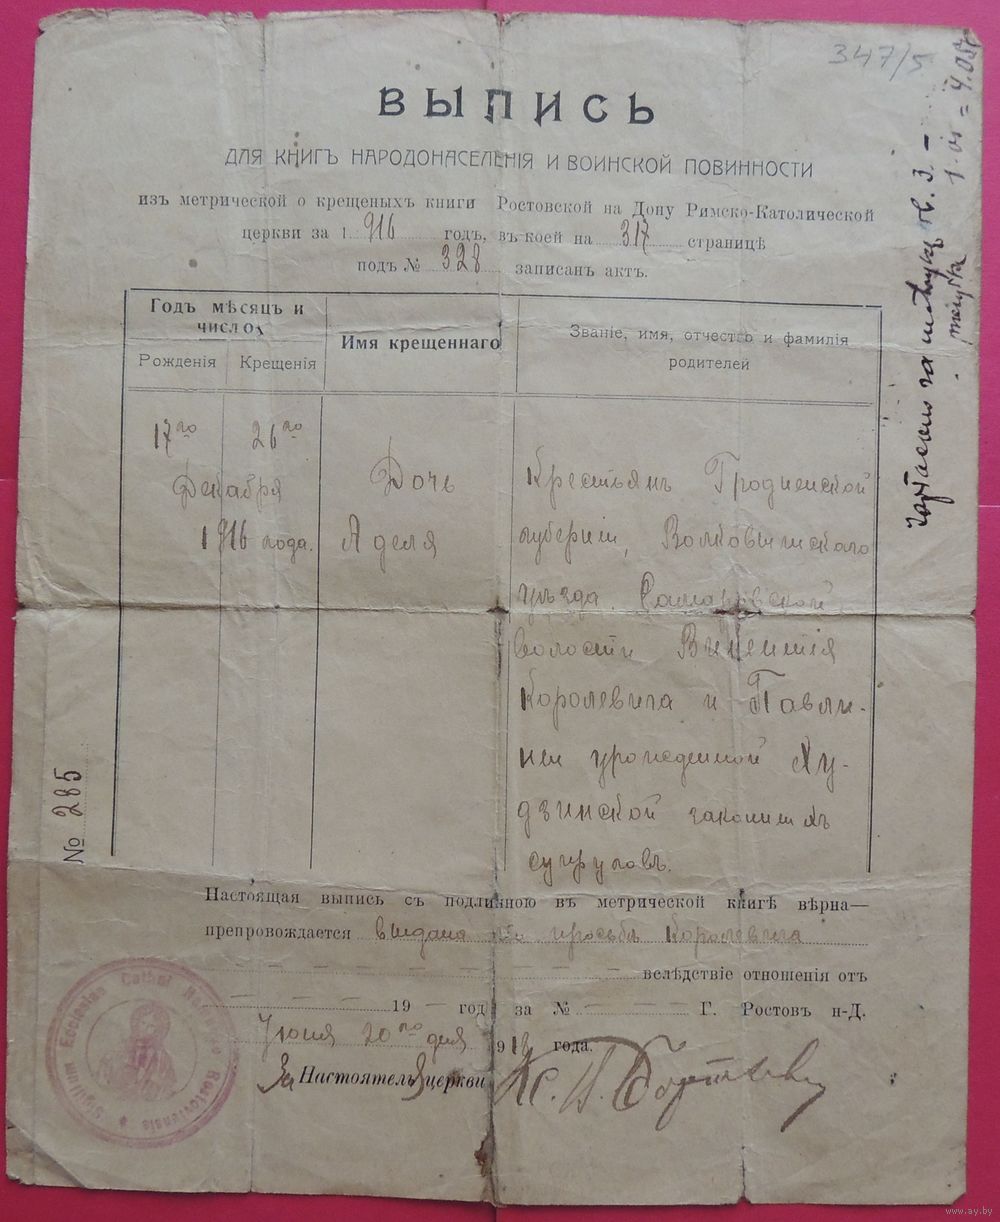 347/5
ВЫПИСЬ
ДЛЯ КНИГЪ НАРОДОНАСЕЛЕНІЯ И ВОИНСКОЙ ПОВИННОСТИ
изъ метрической о крещеныхъ книги Ростовской на Дону Римско-Католической
церкви за 1916 годъ, въ коей на 317 страницѣ
подъ № 328 записанъ актъ.
Годъ мѣсяцъ и
число
Рожденія
Крещенія
Имя крещеннаго
Званіе, имя, отчество и фамилія
родителей
17го 26го
Декабря
1916 года.
Дочь
Аделя
Крестьянъ Гродненской
губерніи, Волковысскаго
уѣзда
волости Викентія
Королевича и Павли-
ны урожденной Ху-
дзинской законныхъ
супруговъ.
№ 285
Настоящая выпись съ подлинною въ метрической книгѣ вѣрна—
препровождается выдана по просьбѣ Королевича
вслѣдствіе отношенія отъ
19 — год за № Г. Ростов н-Д.
20го дня 191 года.
За Настоятеля церкви Кс.
Sigillum Ecclesiae Cathol Rostoviensis
www.ay.by